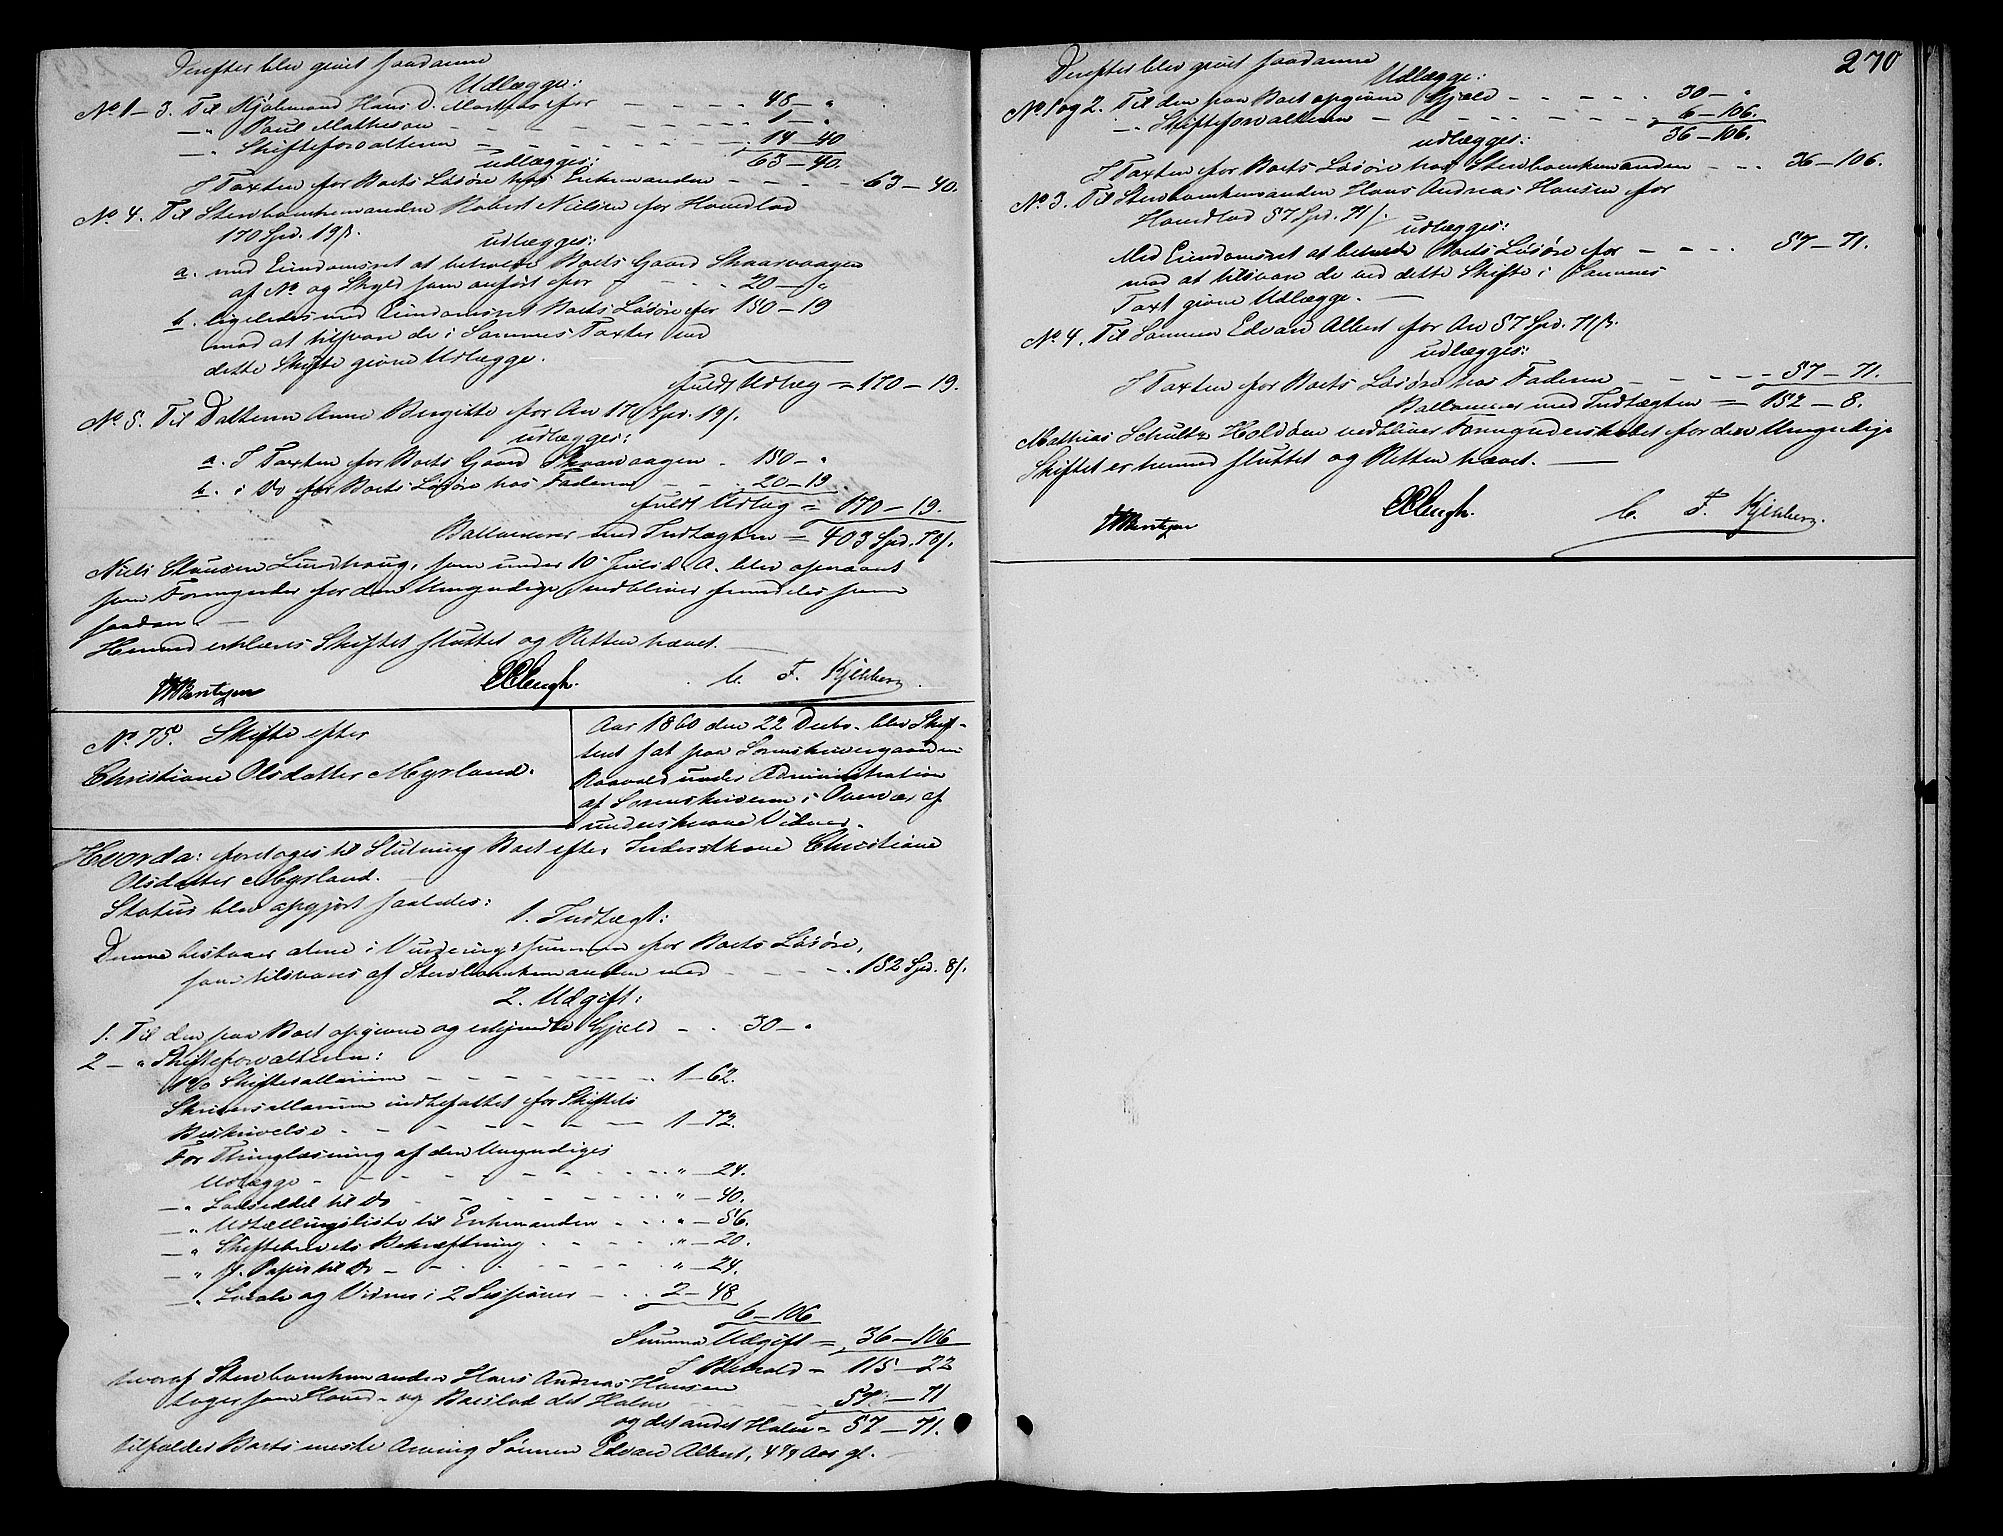 Derefter blev givet saadanne
Udlægge:
No 1-3. Til Kjøbmand Hans D. for - - - 48 - "
-" Poul Mathesen - - - 1 - "
-" Skifteforvalteren - - - 14 - 40
63 - 40.
udlægges:
I Taxten for Boets Løsøre hos Enkemanden - - - 63 - 40.
No 4. Til Sterboenkemanden Robert Nielsen for Hovedlod
170 Spd. 19 ß.
udlægges:
a. med Eiendomsret at beholde Boets Gaard Skaarvaagen
af No og Skyld som anført for - - - 20 - "
b. ligeledes med Eiendomsret Boets Løsøre for 150 - 19
mod at tilsvare de i Sammes Taxter ved
dette Skifte givne Udlægge.
fuldt Udlæg = 170 - 19.
No 5. Til Datteren Anne Bergitte for Arv 170 Spd. 19 ß.
udlægges:
a. I Taxten for Boets Gaard Skaarvaagen - 150 - "
b. i Do for Boets Løsøre hos Faderen - - 20 - 19.
fuldt Udlæg = 170 - 19.
Ballancerer med Indtægten = 403 Spd. 78 ß.
Niels Clausen Lundhaug, som under 10 Juli d. A. blev opnævnt
som Formynder for den Umyndige, vedbliver fremdeles som
saadan. -
Hermed erklæres Skiftet sluttet og Retten hævet. -
C. F. Kjelsberg
No 75. Skifte efter
Christiane Olsdatter Myrland.
Aar 1860 den 22 Decbr. blev Skif-
teret sat paa Sorenskrivergaarden
under Administration
af Sorenskriveren i Overvær af
underskrevne Vidner.
Hvorda: foretoges til Slutning Boet efter Inderstkone Christiane
Olsdatter Myrland. -
Status blev opgjort saaledes:
1. Indtægt:
Denne bestaaer alene i Vurderingssummen for Boets Løsøre,
som tilsvares af Sterboenkemanden med - - - 152 Spd. 8 ß.
2. Udgift:
1. Til den paa Boet opgivne og erkjendte Gjeld - - 30 - "
2 - " Skifteforvalteren:
1% Skiftesallarium - - - 1 - 62.
Skriversallarium indbefattet for Skiftets
Beskrivelse - - - 1 - 72.
For Thinglæsning af den Umyndiges
Udlægge - - - " - 24.
-" Lodseddel til Do - - - " - 40.
-" Udtællingsliste til Enkemanden - - - " - 56.
-" Skiftebrevets Bekræftning - - - " - 20.
-" St. Papir til Do - - - " - 24.
-" Locale og Vidner i 2 Sessioner - - - 2 - 48
6 - 106
Summa Udgift = 36 - 106
I Behold = 115 - 22
hvoraf Sterboenkemanden Hans Andreas Hansen
tager som Hoved- og Boeslod det Halve - - - 57 - 71
og det andet Halve = 57 - 71.
tilfalder Boets eneste Arving Sønnen Edvard Albert, 4 1/4 Aar gl.
270
Derefter blev givet saadanne
Udlægge:
No 1 og 2. Til den paa Boet opgivne Gjeld - - - 30 - "
-" Skifteforvalteren - - - 6 - 106.
36 - 106.
udlægges:
I Taxten for Boets Løsøre hos Sterboenkemanden - - - 36 - 106.
No 3. Til Sterboenkemanden Hans Andreas Hansen for
Hovedlod 57 Spd. 71 ß.
udlægges:
Med Eiendomsret at beholde Boets Løsøre for - - - 57 - 71.
mod at tilsvare de ved dette Skifte i Sammes
Taxt givne Udlægge. -
No 4. Til Sønnen Edvard Albert for Arv 57 Spd. 71 ß.
udlægges:
I Taxten for Boets Løsøre hos Faderen - - - 57 - 71.
Ballancerer med Indtægten = 152 - 8.
Mathias Schultz Holdøen vedbliver Formynderskabet for den Umyndige
Skiftet er hermed sluttet og Retten hævet. -
C. F. Kjelsberg.